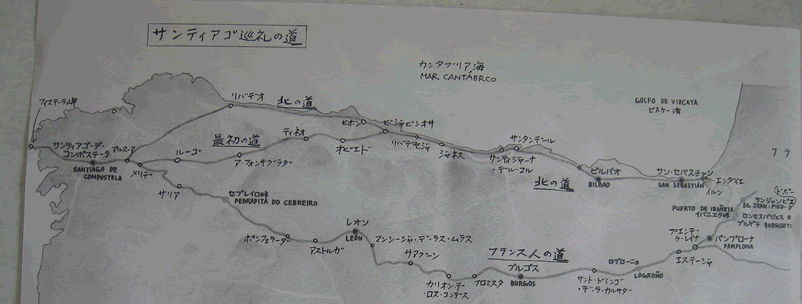 サンティアゴ巡礼の道
カンタブリア海
MAR CANTÁBRCO
GOLFO DE VIZCAYA
ビスケー湾
フラ
フィステーラ岬
リバデオ
北の道
ヒホン
ビジャビシオサ
リバデセジャ
ジャネス
サンタンデール
サンティジャーナ
・デル・マル
最初の道
ティネオ
オビエド
サンティアゴ・デ・
コンポステーラ
SANTIAGO DE
COMPOSTELA
アルスーア
メリデ
ルーゴ
ア・フォンサグラダ
北の道
ビルバオ
BILBAO
サン・セバスチャン
SAN SEBASTIÁN
エンダイエ
イルン
サンジャンピエ
PUERTO DE IBAÑETA
イバニエタ峠
ロンセスバジェス
ブルゲテ
サリア
セブレイロ峠
PEDRAFITA DO CEBREIRO
ポンフェラーダ
アストルガ
レオン
LEÓN
マンシージャ・デ・ラス・ムラス
サアグーン
カリオン・デ・
ロス・コンデス
フロミスタ
フランス人の道
ブルゴス
BURGOS
サント・ドミンゴ
・デ・ラ・カルサダ
ログローニョ
LOGROÑO
エステージャ
プエンテ・
ラ・レイナ
パンプローナ
PAMPLONA